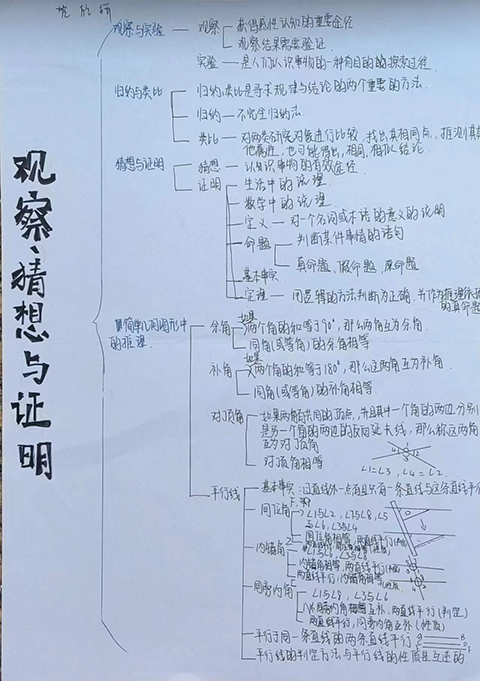 观察、猜想与证明
观察与实验
观察
获得感性认知的重要途径
观察结果需要验证
实验 — 是人们认识事物的一种有目的的探索过程.
归纳与类比
归纳、类比是寻求规律与结论的两个重要的方法.
归纳 — 不完全归纳法.
类比 — 对两类研究对象进行比较, 找出其相同点, 推测其其
他属性, 也可能得出, 相同, 相似结论.
猜想与证明
猜想 — 认知识事物的有效途径
证明
生活中的说理
数学中的说理
定义 — 对一个名词或术语的意义的说明
命题
判断某件事情的语句
真命题、假命题、原命题
基本事实
定理 — 用逻辑的方法判断为正确, 并作为推理依据
的真命题
简单几何图形中
的推理
余角
如果
两个角的和等于90°, 那么两角互为余角.
同角(或等角)的余角相等
补角
如果
两个角的和等于180°, 那么这两角互为补角.
同角(或等角)的补角相等
对顶角
如果两角有共同的顶点, 并且其中一个角的两边分别
是另一个角的两边的反向延长线, 那么称这两角
互为对顶角
对顶角相等
∠1=∠3, ∠4=∠2.
平行线
基本事实: 过直线外一点有且只有一条直线与这条直线平行
同位角
∠1与∠2, ∠7与∠8, ∠5
与∠6, ∠3与∠4
同位角相等, 两直线平行
内错角
∠1与∠5, ∠3与∠8
内错角相等, 两直线平行
两直线平行, 内错角相等
同旁内角
∠1与∠8, ∠3与∠6
同旁内角互补, 两直线平行(判定)
两直线平行, 同旁内角互补(性质)
平行于同一条直线的两条直线平行
平行线的判定方法与平行线的性质是互逆的